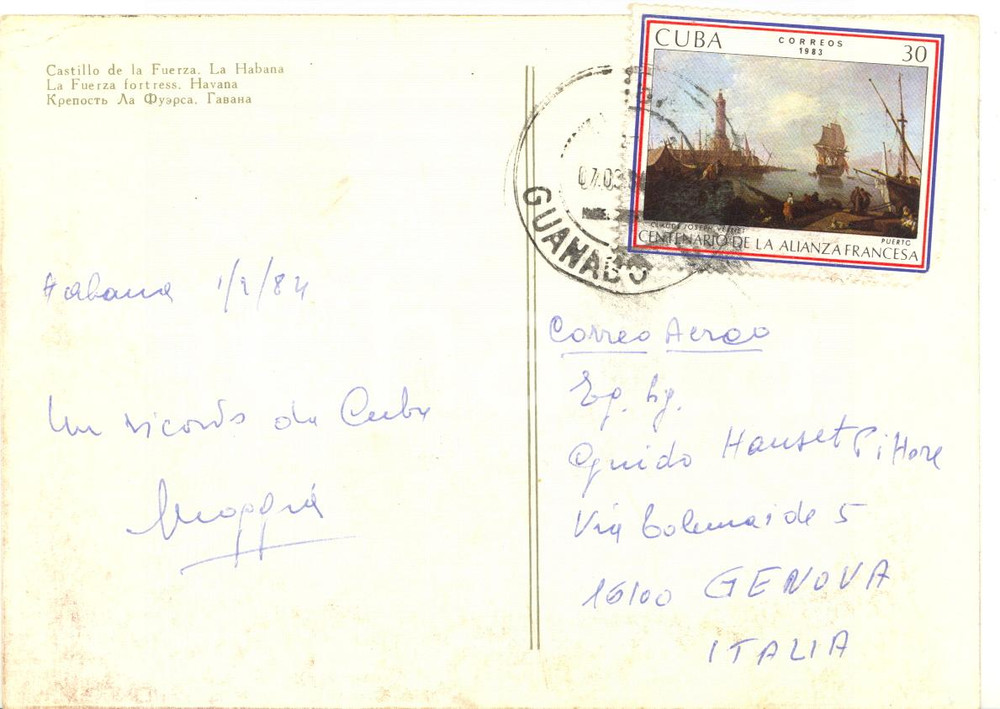 Castillo de la Fuerza. La Habana
La Fuerza fortress. Havana
Крепость Ла Фуэрса. Гавана
CUBA CORREOS 30
1983
CLAUDE JOSEPH VERNET PUERTO
CENTENARIO DE LA ALIANZA FRANCESA
07.03
GUANABO
Habana 1/2/84
Un ricordo da Cuba
Correo Aereo
Eg. Sig.
Guido Hauset Pittore
Via 5
16100 GENOVA
ITALIA